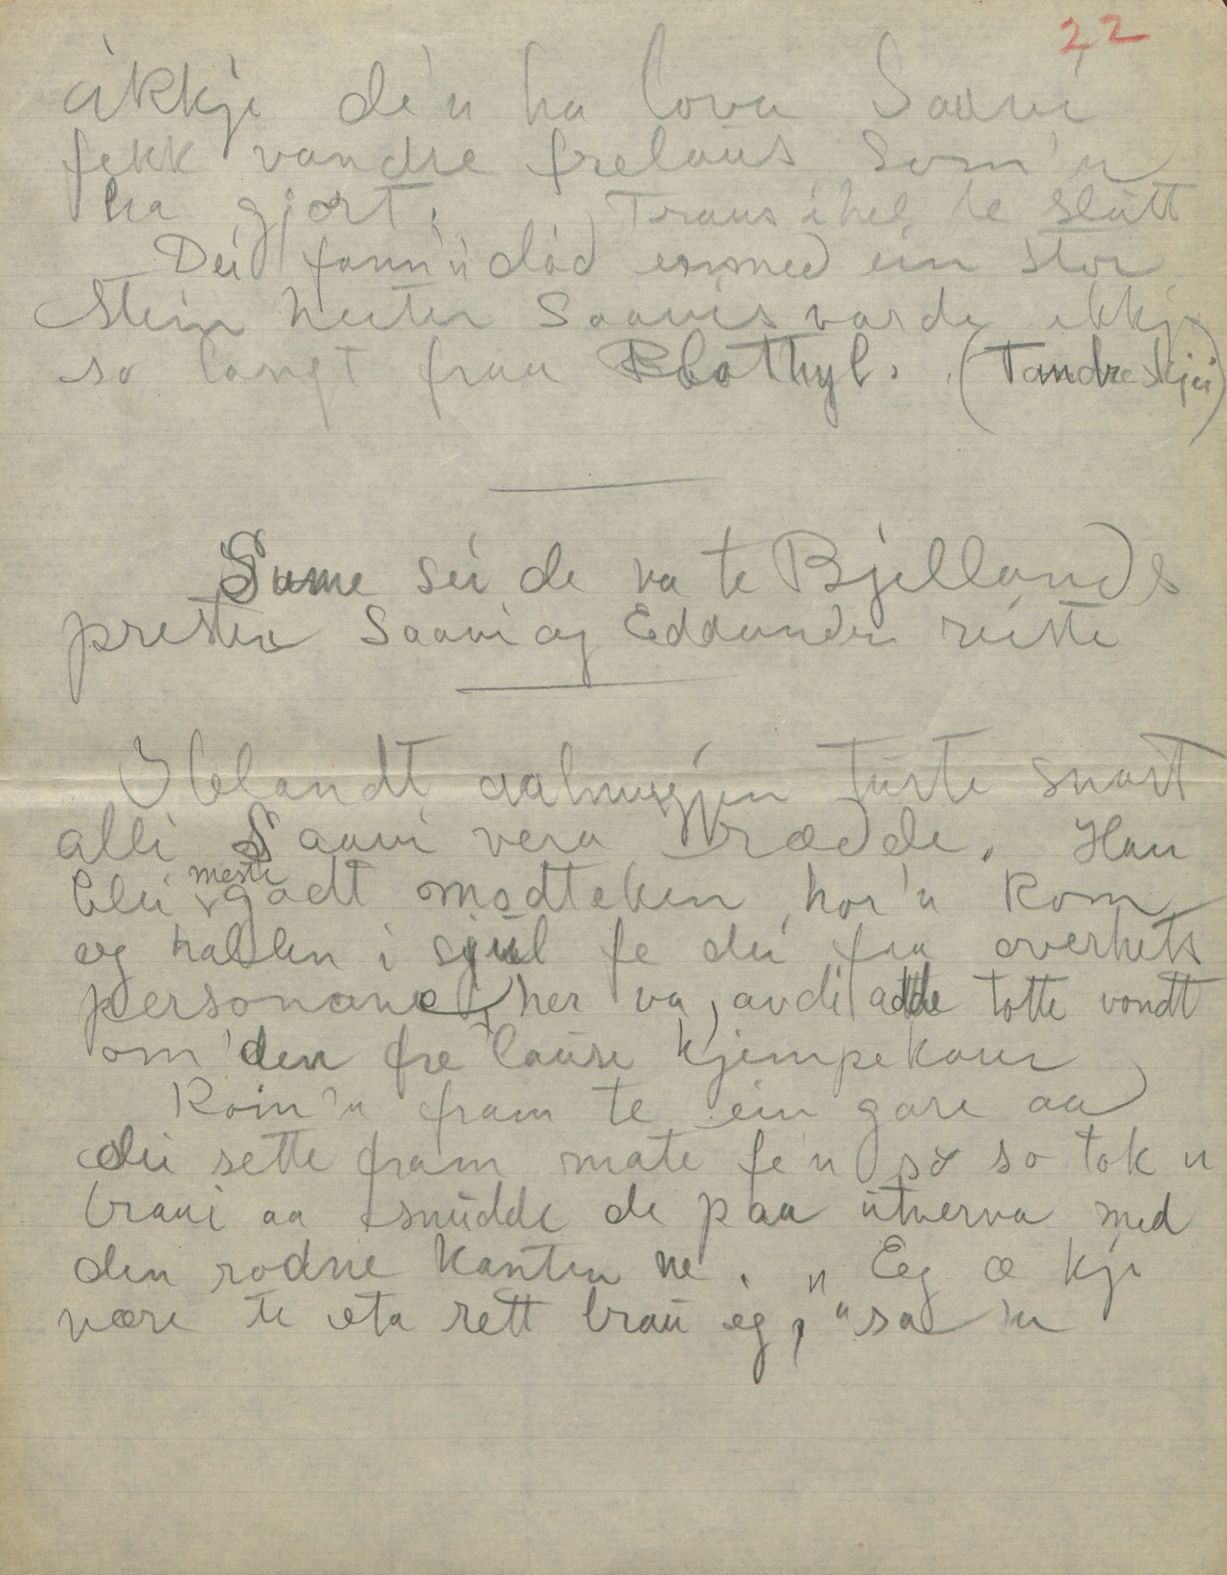 22
ikkje de'n ha lova Saavi
fekk vandre frelaus som'n
ha gjort. Traus ihel te slutt
Dei fann'n død ermed ein stor
stein heiter Saavis varde ikkje
so langt fraa Blothyl. (Tandreskjei)
Sume sei de va te Bjellands
presten Saavi og Eddunder reiste
Iblandt aalmugjen turte snart
alli Saavi vera rædde. Han
blei meste godt modteken hor'n kom
og halden i sjul fe dei fraa overhets
personane her va, avdi adde totte vondt
om den fre lause kjempekaur
Kom'n fram te ein gare aa
dei sette fram mate fe'n so tok n
braui aa snudde de paa utverva med
den rodne kanten ne. "Eg æ kje
være te eta rett brau eg," sa n